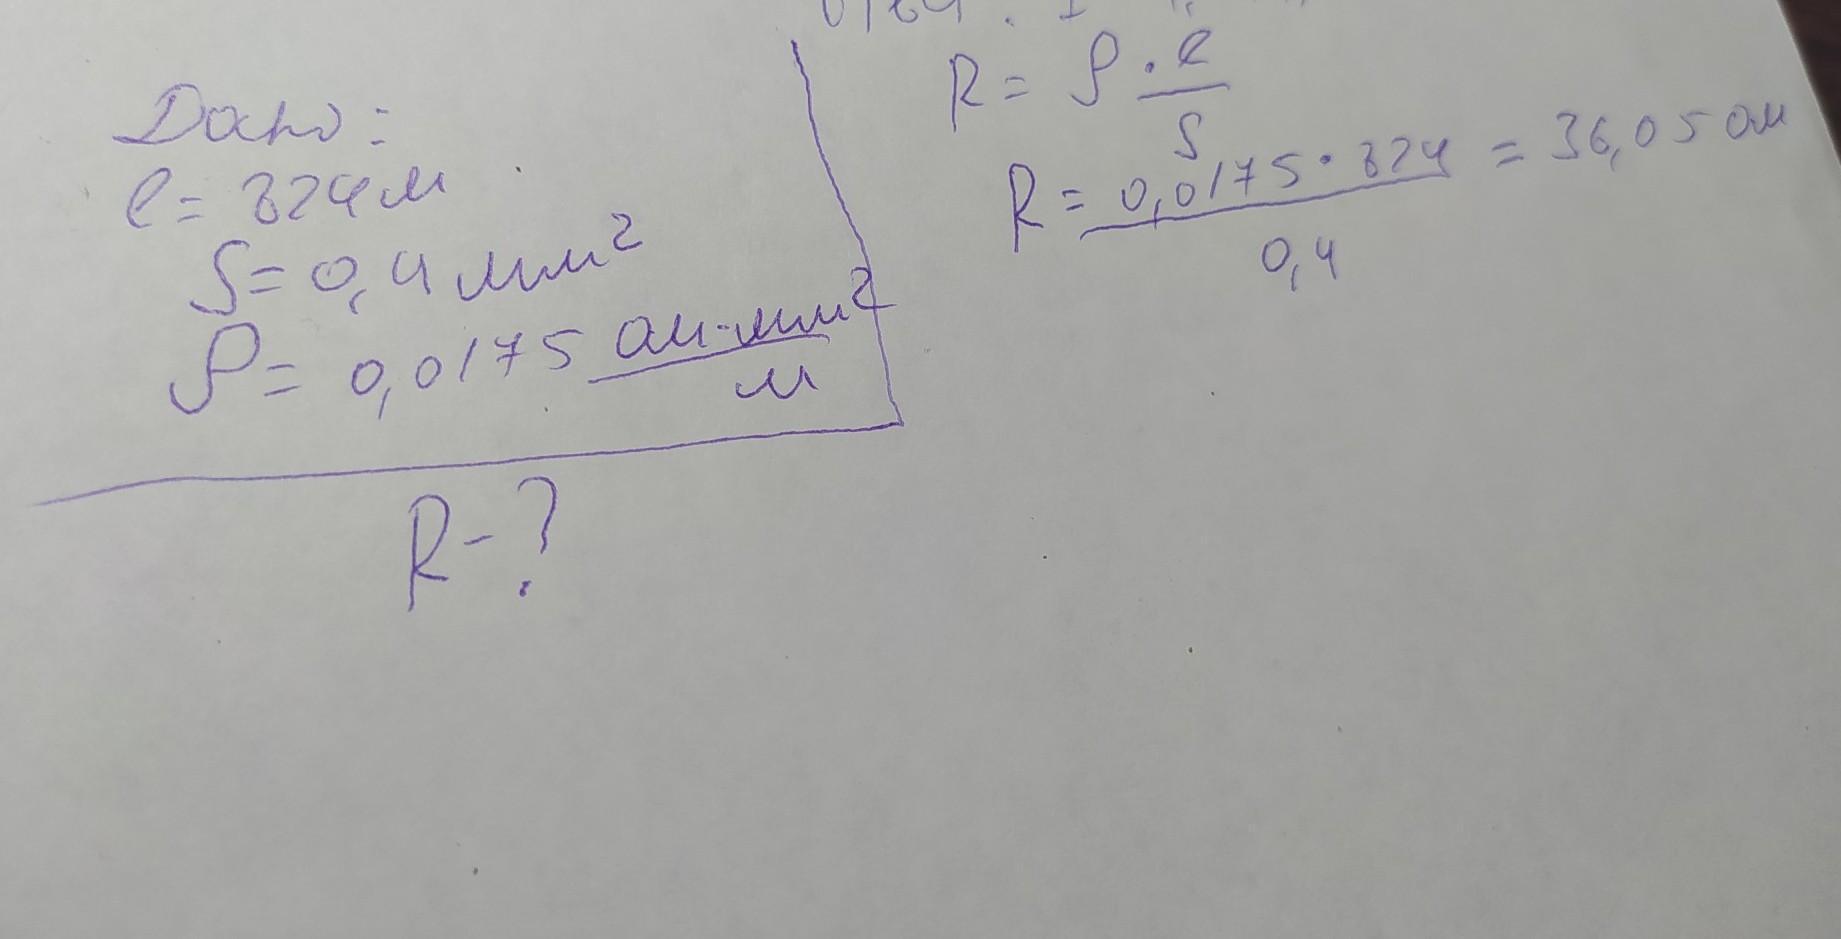 Дано:
l = 824 м
S = 0,4 мм²
ρ = 0,0175 ом·мм²/м
R - ?
R = ρ · l/S
R = 0,0175 · 824/0,4 = 36,05 ом